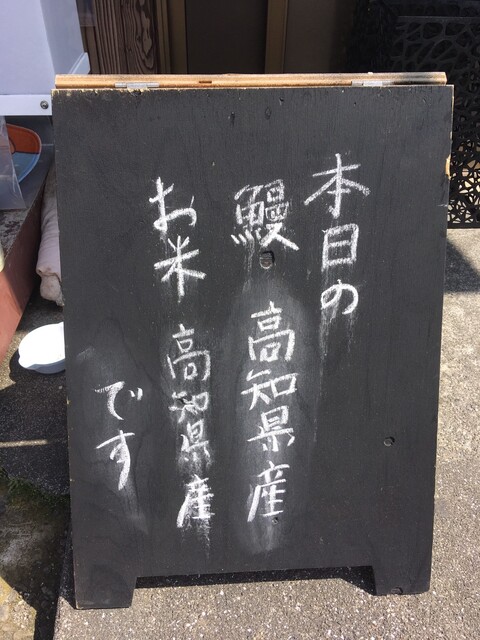 本日の
鰻 高知県産
お米 高知県産
です